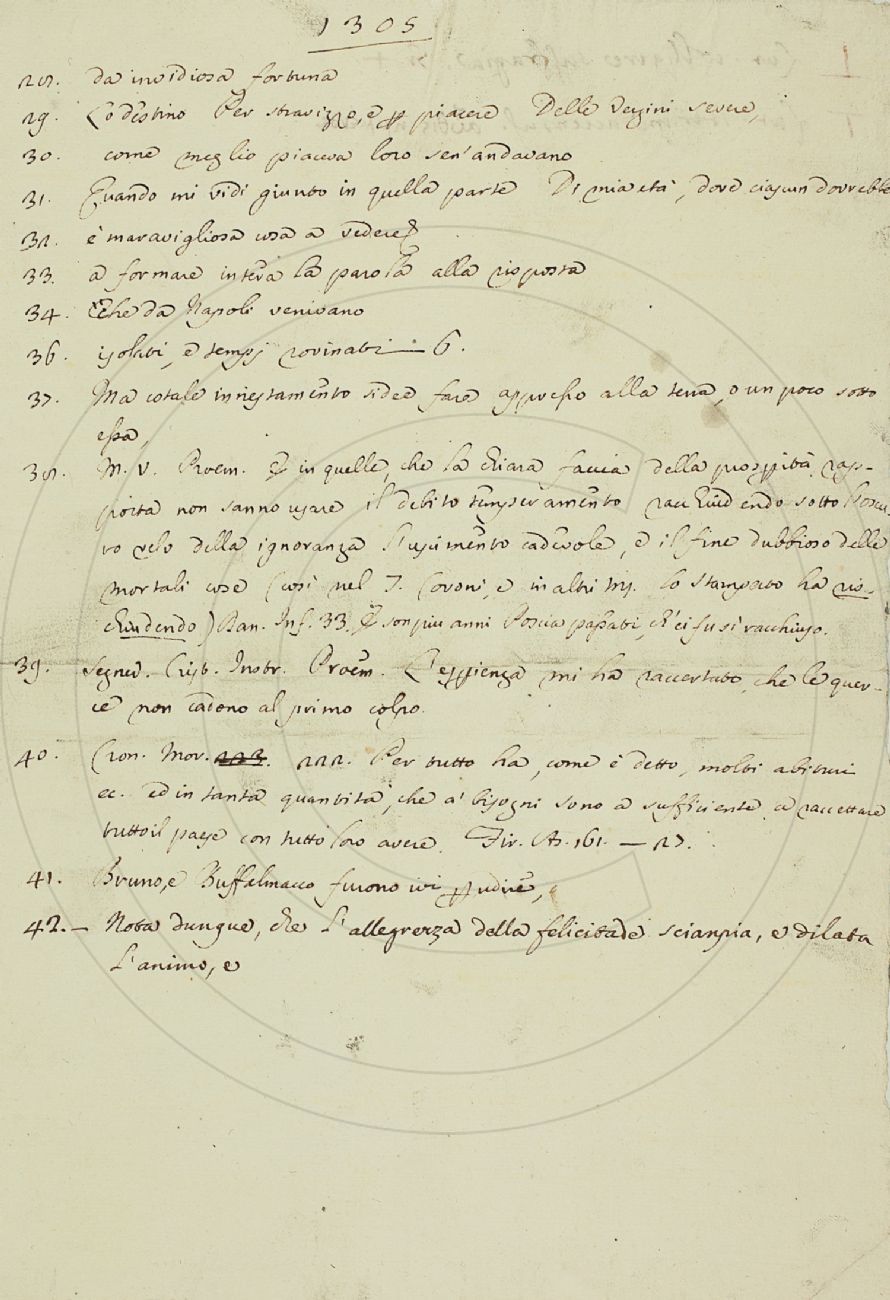 1305
28. da invidiosa fortuna
29. Co destino Per stravizzo, e p piacere Delle Vergini severe,
30. come meglio piaceva loro sen' andavano
31. Quando mi vidi giunto in quella parte Di mia età, dove ciascun dovrebbe
32. è maravigliosa cosa a vedere
33. a formare intera la parola alla risposta
34. Che da Napoli venivano
36. isolati, e tempj rovinati — 6.
37. Ma cotale innestamento si dee fare appresso alla terra, o un poco sotto
essa,
38. M. V. Proem. in quelle, che la chiara faccia della prosperità rap-
porta non sanno usare il debito temperamento racchiudendo sotto l'oscu
ro velo della ignoranza l'uscimento cadevole, e il fine dubbioso delle
mortali cose (così nel T. Covoni, e in altri mss. lo stampato ha ris-
chiudendo) Dan. Inf. 33. E son più anni Poscia passati, ch'ei fu sì racchiuso.
39. Segner. Crist. Instr. Proem. L'esperienza mi ha raccertato, che le quer-
ce non cadono al primo colpo.
40. Cron. Mor. 223. 222. Per tutto ha, come è detto, molti abituri
ec. ed in tanta quantità, che a' bisogni sono a sufficiente a raccettare
tutto il paese con tutto loro avere. Fir. As. 161. — 27.
41. Bruno, e Buffalmacco furono ivi p udire,
42. — Nota dunque, che l'allegrezza della felicitade sciampia, e dilata
l'animo, e